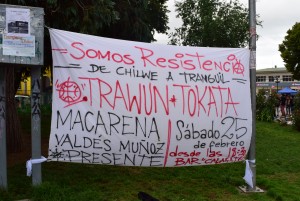 SOMOS RESISTENCIA
DE CHILWE A TRANGUIL
TRAWUN * TOKATA
MACARENA
VALDÉS MUÑOZ
* PRESENTE *
Sábado 25
de febrero
desde las